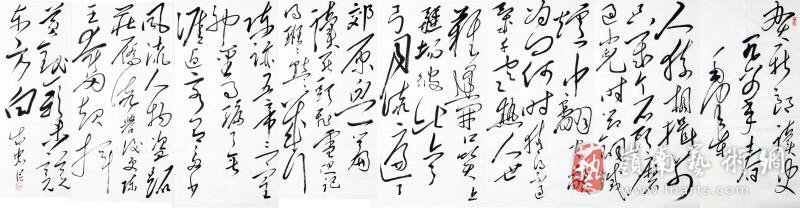 贺新郎 读史
一九六四年春
毛泽东
人猿相揖别
只几个石头磨
过小儿时节铜铁
炉中翻火焰
为问何时猜得不过
几千寒热人世
难逢开口笑上
疆场彼此弯
弓月流遍了
郊原血一篇
读罢头飞雪但记
得斑斑点点几行
陈迹五帝三皇
神圣事骗了无
涯过客有多少
风流人物盗跖
庄蹻流誉后更陈
王奋起挥
黄钺歌未竟
东方白
嶺南藝術網